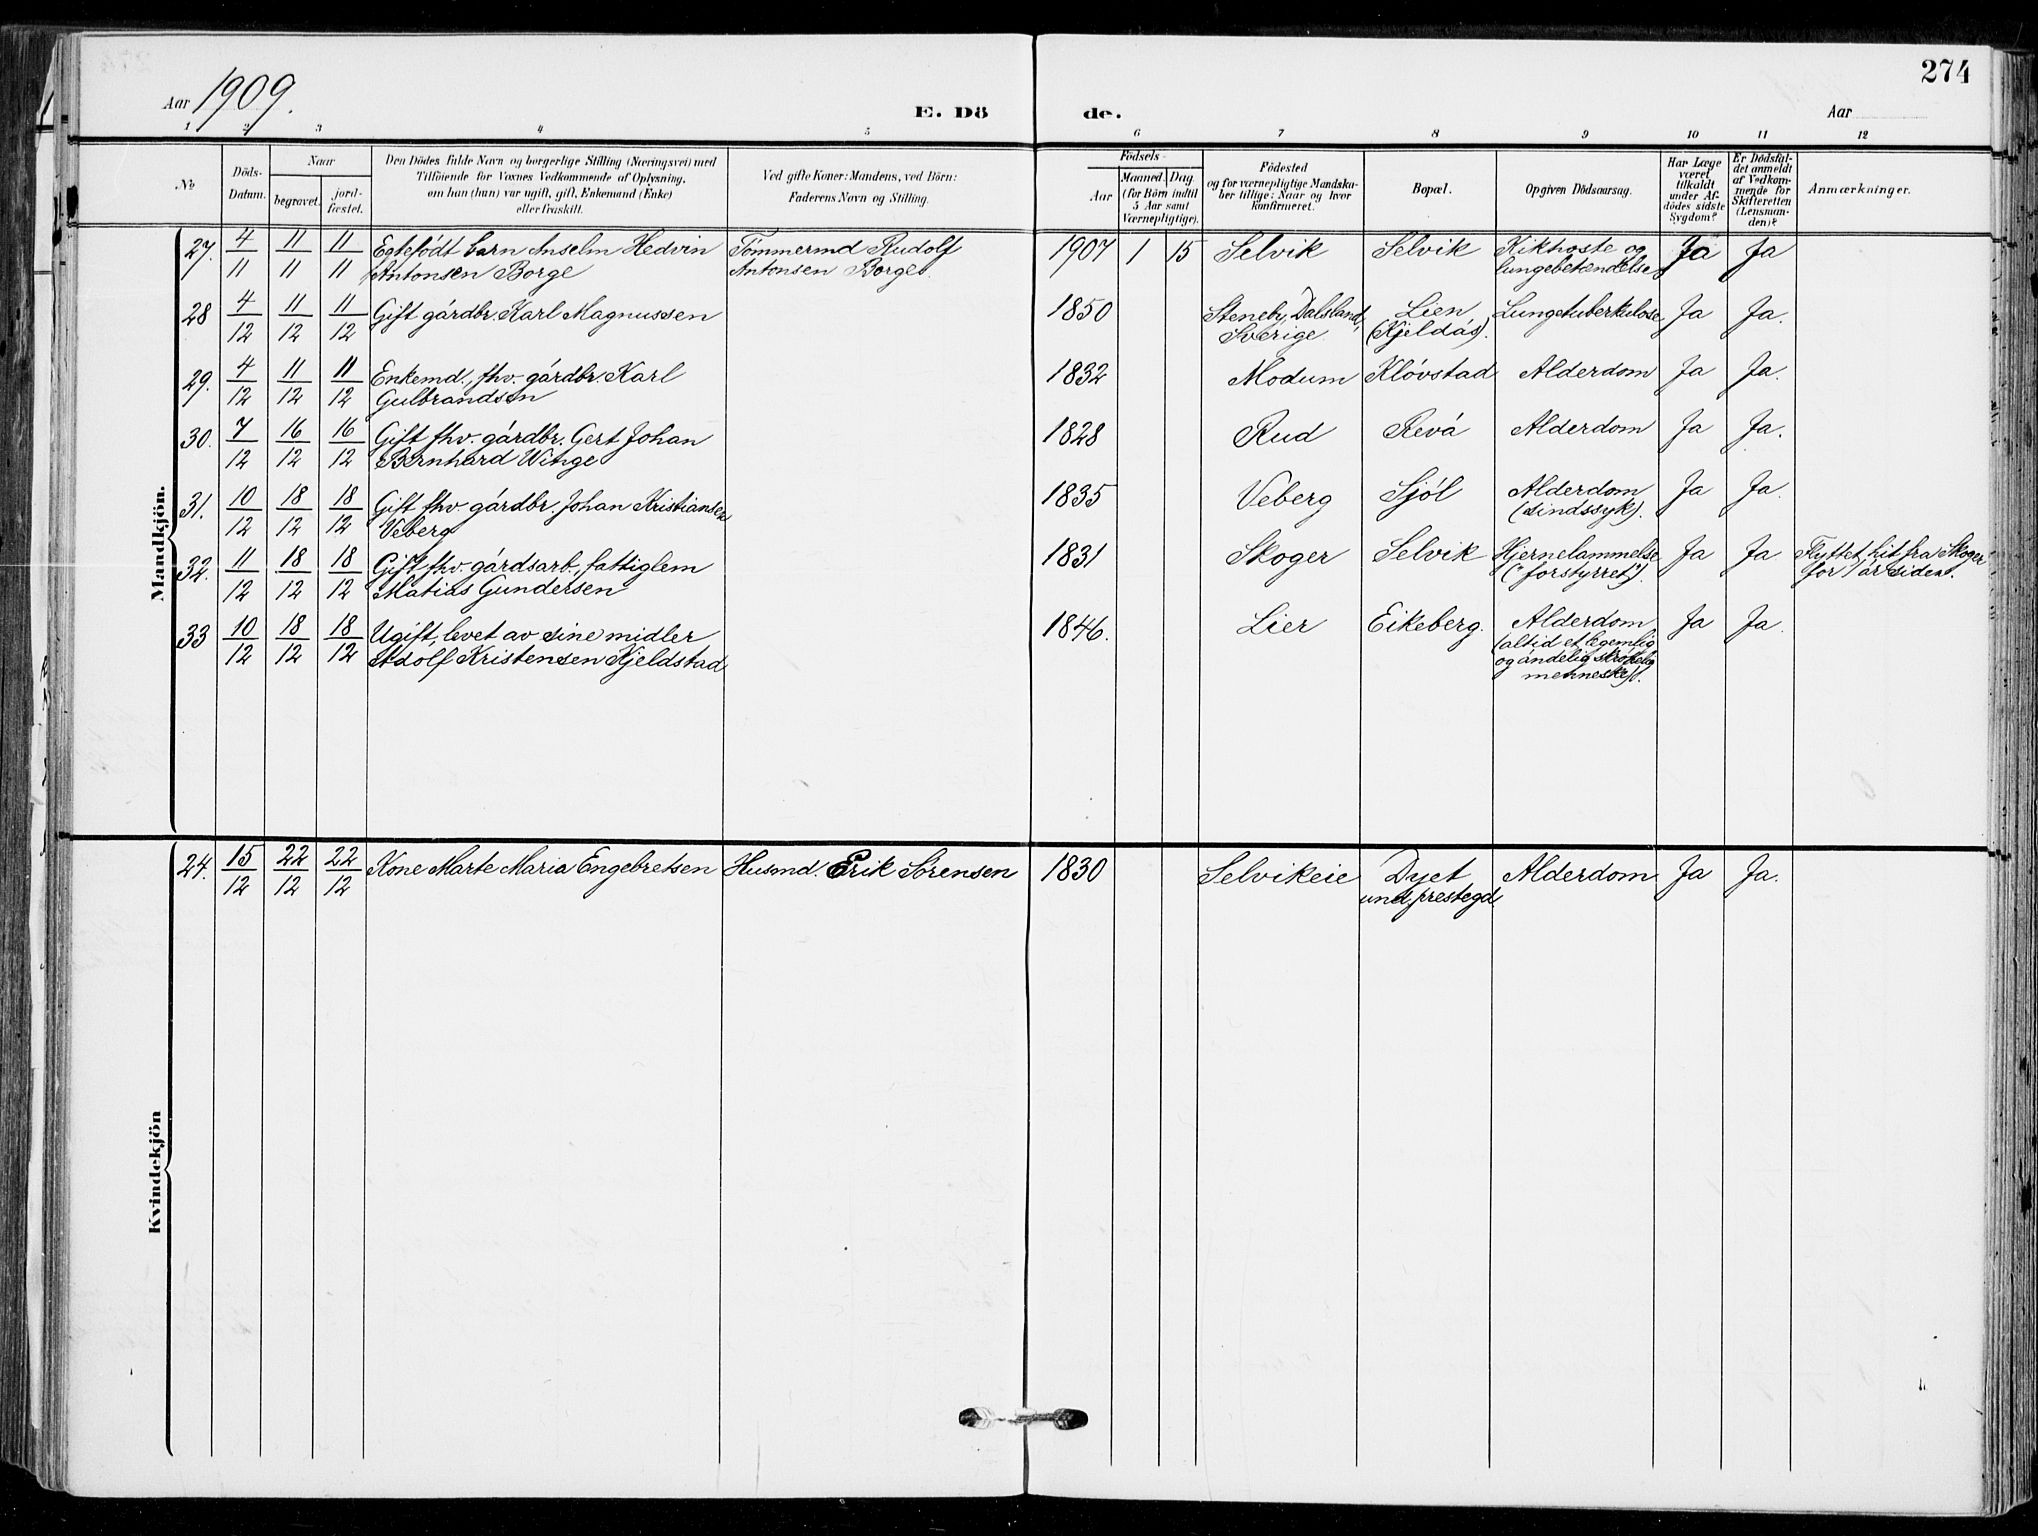 274
Aar 1909.
E. Dö de.
Aar
1 2 3 4 5 6 7 8 9 10 11 12
No
Döds-Datum.
Naar
begravet.
jord-fæstet.
Den Dödes fulde Navn og borgerlige Stilling (Næringsvei) med
Tilföiende for Voxnes Vedkommende af Oplysning,
om han (hun) var ugift, gift, Enkemand (Enke)
eller fraskilt.
Ved gifte Koner: Mandens, ved Börn:
Faderens Navn og Stilling.
Födsels-
Aar
Maaned. Dag
(for Börn indtil
5 Aar samt
Værnepligtige).
Födested
og for værnepligtige Mandska-
ber tillige: Naar og hvor
konfirmeret.
Bopæl.
Opgiven Dödsaarsag.
Har Læge
været
tilkaldt
under Af-
dödes sidste
Sygdom?
Er Dödsfal-
det anmeldt
af Vedkom-
mende for
Skifteretten
(Lensman-
den)?
Anmærkninger.
Mandkjön.
27. 4/11 11/11 11/11 Egtefödt barn Anselm Hedvin Tömmermd Rudolf 1907 1 15 Selvik Selvik Kikhoste og Ja Ja
Antonsen Borge Antonsen Borge. lungebetændelse
28 4/12 11/12 11/12 Gift gárdbr. Karl Magnussen 1850 Steneby, Dalsland, Lien Lungetuberkulose Ja Ja.
Sverige. (Kjeldás).
29. 4/12 11/12 11/12 Enkemd., fhv. gárdbr. Karl 1832 Modum Klövstad Alderdom Ja Ja.
Gulbrandsen
30. 7/12 16/12 16/12 Gift fhv. gárdbr. Gert Johan 1828 Rud Revá Alderdom Ja Ja.
Bernhard Winge
31. 10/12 18/12 18/12 Gift fhv gárdbr. Johan Kristiansen 1835 Veberg Sjöl Alderdom Ja Ja.
Veberg (sindssyk).
32. 11/12 18/12 18/12 Gift fhv. gárdsarb., fattiglem 1831 Skoger Selvik Hjernelammelse Ja Ja Flyttet hit fra Skoger
Matias Gundersen ("forstyrret"). for 1 ár siden.
33 10/12 18/12 18/12 Ugift, levet av sine midler 1846. Lier Eikeberg. Alderdom Ja Ja.
Adolf Kristensen Kjeldstad (altid et legemlig
og ándelig skrøpelig
menneske).
Kvindekjön
24. 15/12 22/12 22/12 Kone Marte Maria Engebretsen Husmd. Erik Sörensen 1830 Selvikeie Dyet Alderdom Ja Ja.
und. prestegd.